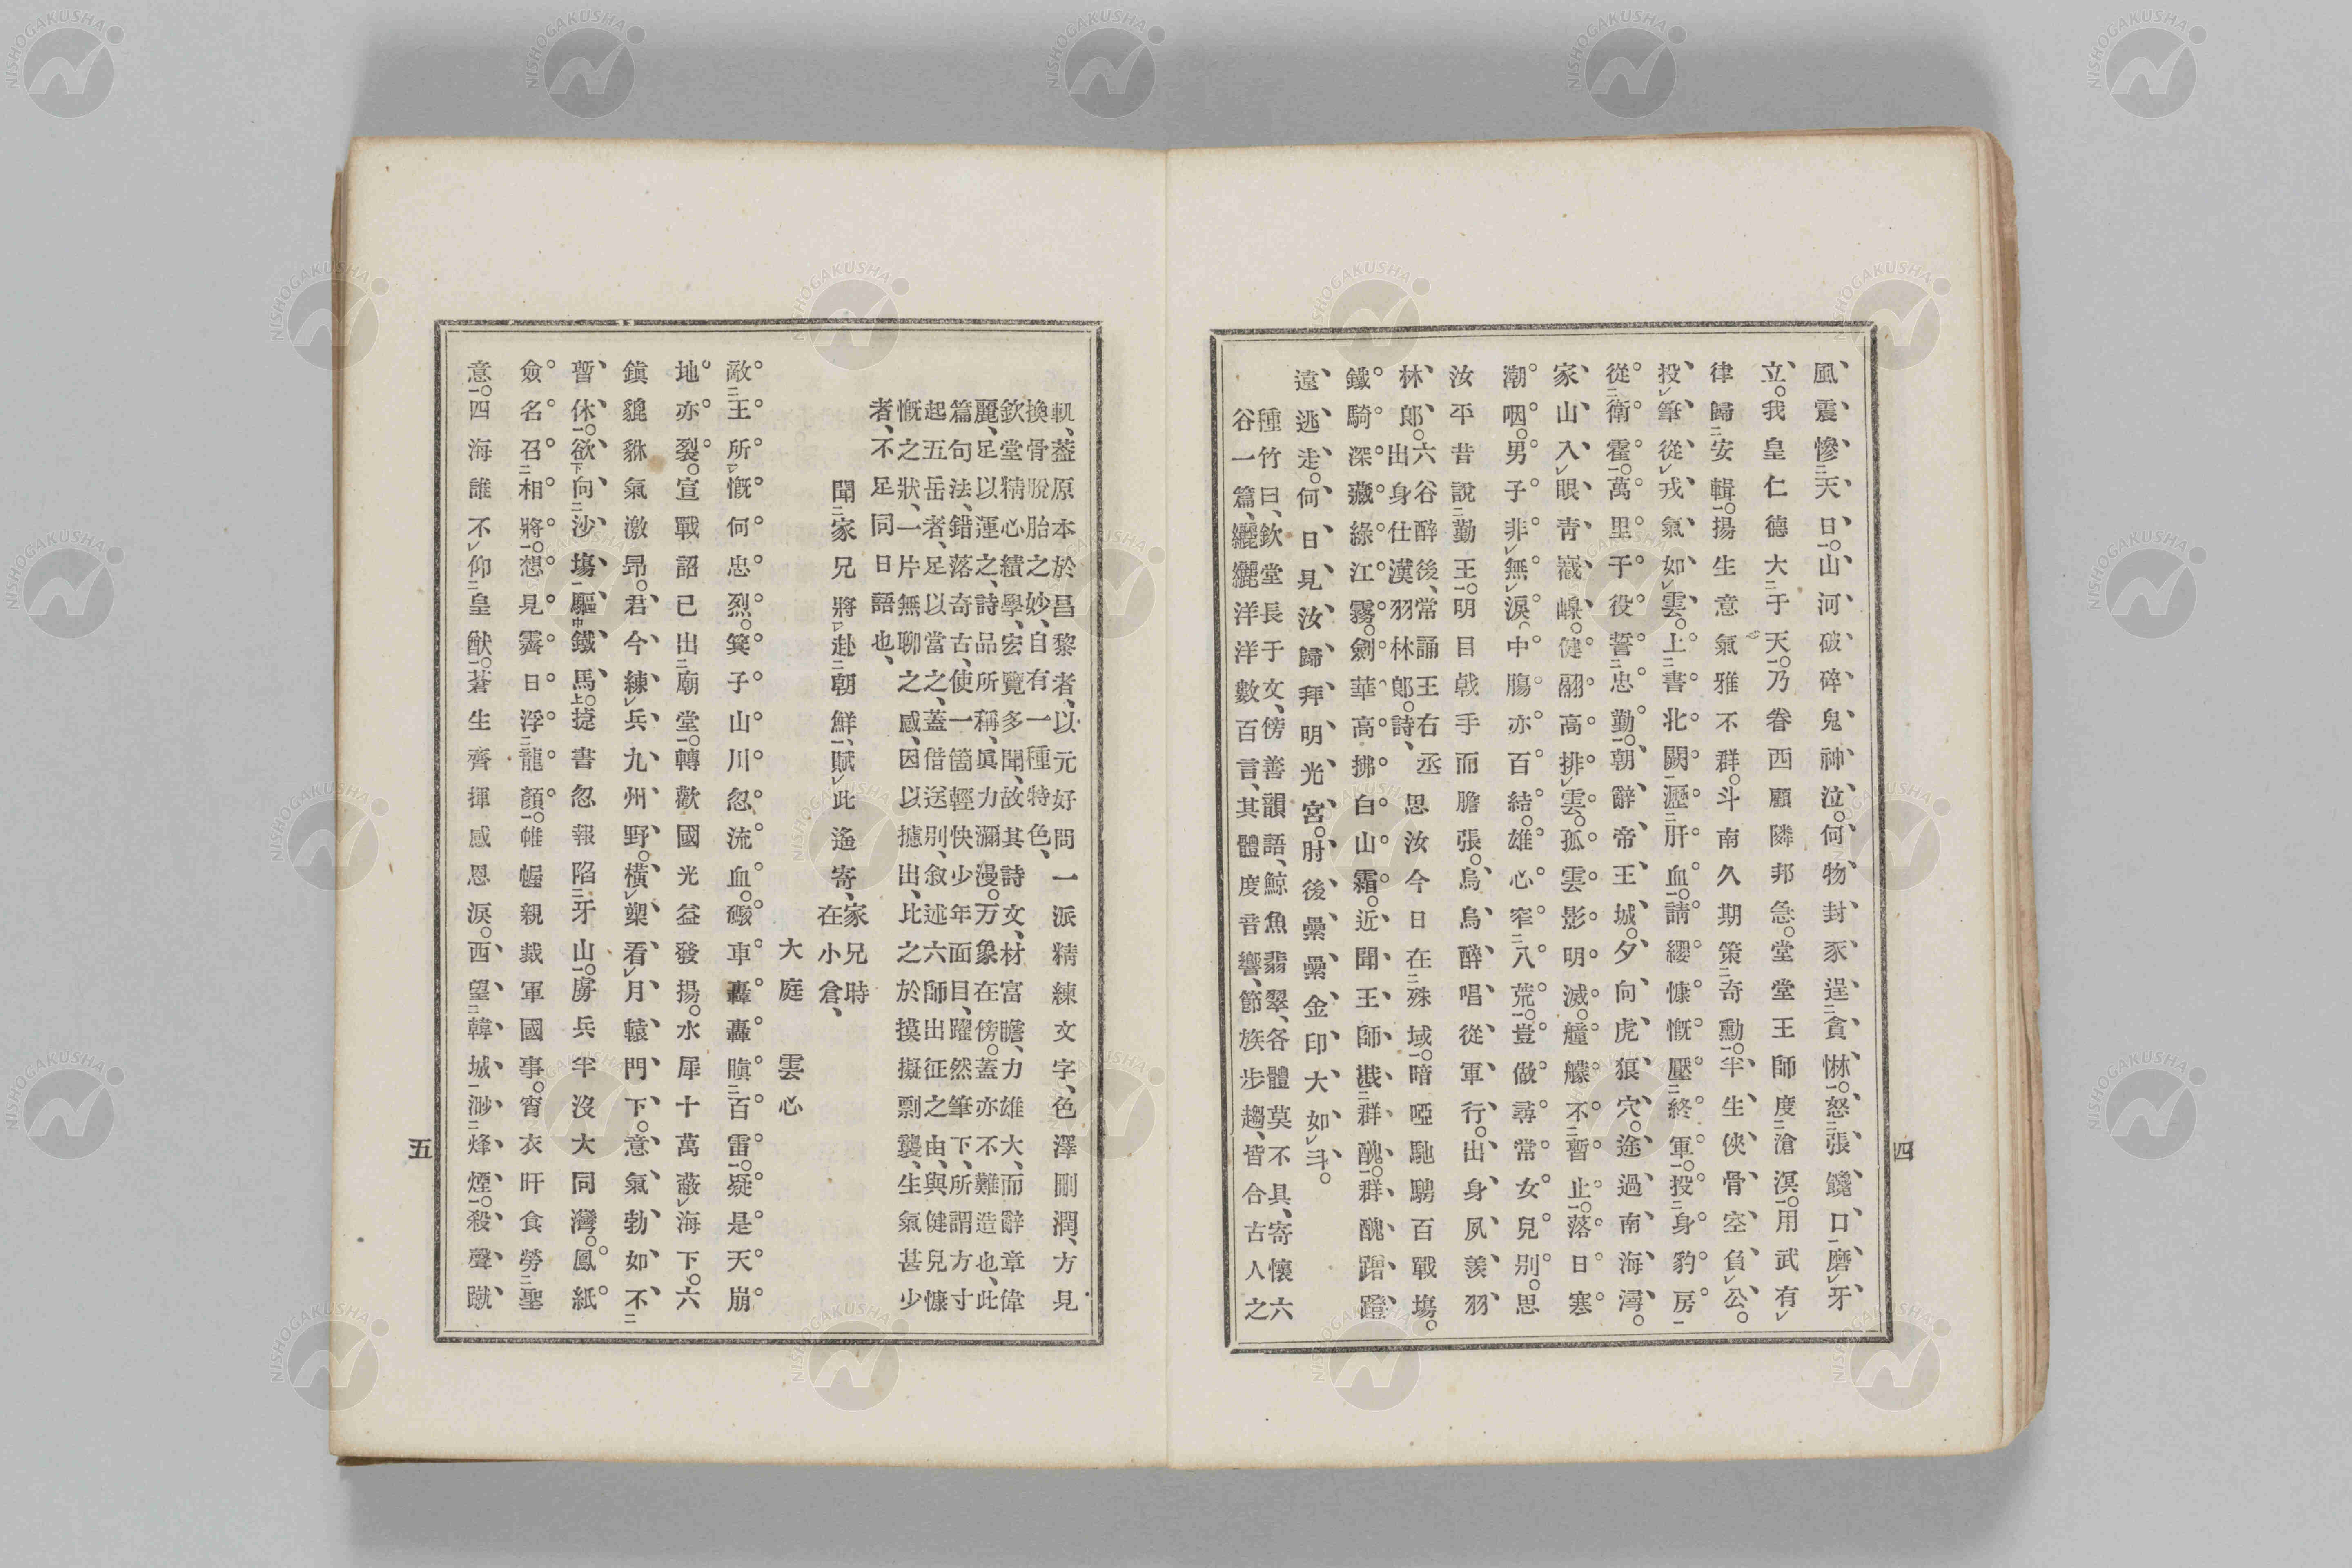 四
風震慘天日。山河破碎鬼神泣。何物封豕逞貪惏。怒張饞口磨牙
立。我皇仁德大于天。乃眷西顧隣邦急。堂堂王師度滄溟。用武有
律歸安輯。揚生意氣雅不群。斗南久期策奇勳。半生俠骨空負公。
投筆從戎氣如雲。上書北闕瀝肝血。請纓慷慨壓終軍。投身豹房
從衛霍。萬里于役誓忠勤。朝辭帝王城。夕向虎狼穴。途過南海灣。
家山入眼靑巀嵲。健翮高排雲。孤雲影明滅。艟艨不暫止。落日寒
潮咽。男子非無淚。中膓亦百結。雄心窄八荒。豈倣尋常女兒別。思
汝平昔說勤王。明目戟手而膽張。烏烏醉唱從軍行。出身夙羨羽
林郞。六谷醉後、常誦王右丞出身仕漢羽林郞。詩、思汝今日在殊域。喑啞馳騁百戰塲。
鐵騎深藏綠江霧。劍華高拂白山霜。近聞王師戡群醜。群醜蹭蹬
遠逃走。何日見汝歸拜明光宮。肘後纍纍金印大如斗。
種竹曰、欽堂長于文、傍善韻語、鯨魚翡翠、各體莫不具、寄懷六
谷一篇、纚纚洋洋數百言、其體度音響、節族步趨、皆合古人之
軌、葢原本於昌黎者、以元好問一派精練文字、色澤剛潤、方見
換骨脫胎之妙、自有一種特色、
欽堂精心績學、宏覽多聞、故其詩文、材富贍、力雄大、而辭章偉
麗、足以運之、詩品所稱、眞力瀰漫。万象在傍。蓋亦不難造也、此
篇句法、錯落奇古、使一箇輕快少年面目、躍然筆下、所謂方寸
起五岳者、足以當之、蓋借送別、叙述六師出征之由、與健兒慷
慨之狀、一片無聊之感、因以攄出、比之於摸擬剽襲、生氣甚少
者、不足同日語也、
聞家兄將赴朝鮮、賦此遙寄、家兄時在小倉、
大庭雲心
敵王所愾何忠烈。箕子山川忽流血。礟車轟轟瞋百雷。疑是天崩
地亦裂。宣戰詔已出廟堂。轉歡國光益發揚。水犀十萬蔽海下。六
鎭貔貅氣激昂。君今練兵九州野。橫槊看月轅門下。意氣勃如不
暫休。欲向沙塲驅鐵馬。捷書忽報陷牙山。虜兵半沒大同灣。鳳紙
僉名召相將。想見霽日浮龍顏。帷幄親裁軍國事。宵衣旰食勞聖
意。四海誰不仰皇猷。蒼生齊揮感恩淚。西望韓城渺烽煙。殺聲蹴
五